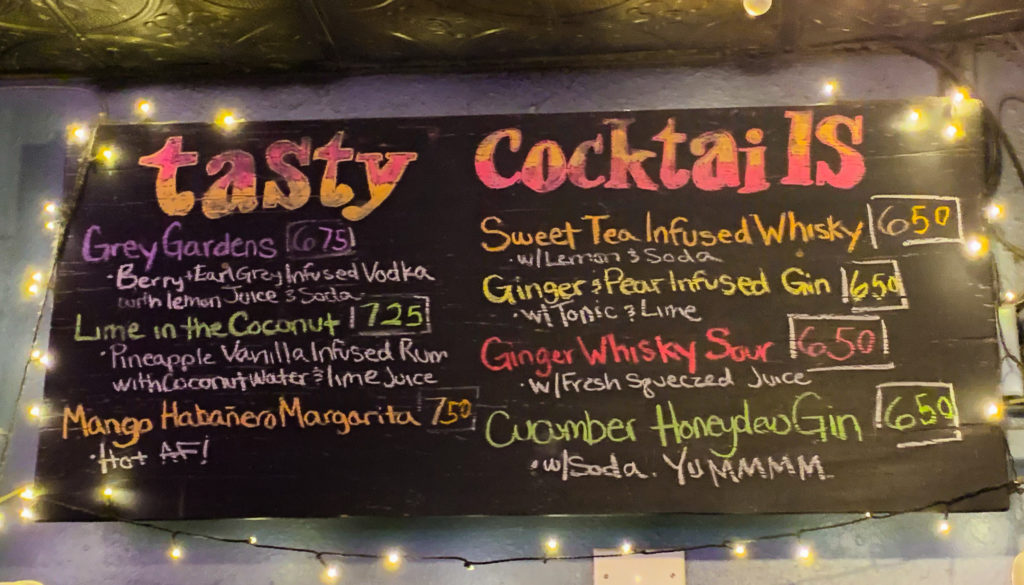 tasty Cocktails
Grey Gardens 675
• Berry + Earl Grey Infused Vodka
with lemon Juice & Soda
Lime in the Coconut 725
• Pineapple Vanilla Infused Rum
with Coconut Water & lime Juice
Mango Habañero Margarita 750
• Hot AF!
Sweet Tea Infused Whisky 650
• w/Lemon & Soda
Ginger & Pear Infused Gin 650
• w/Tonic & Lime
Ginger Whisky Sour 650
• w/Fresh Squeezed Juice
Cucumber Honeydew Gin 650
• w/Soda. YUMMMM